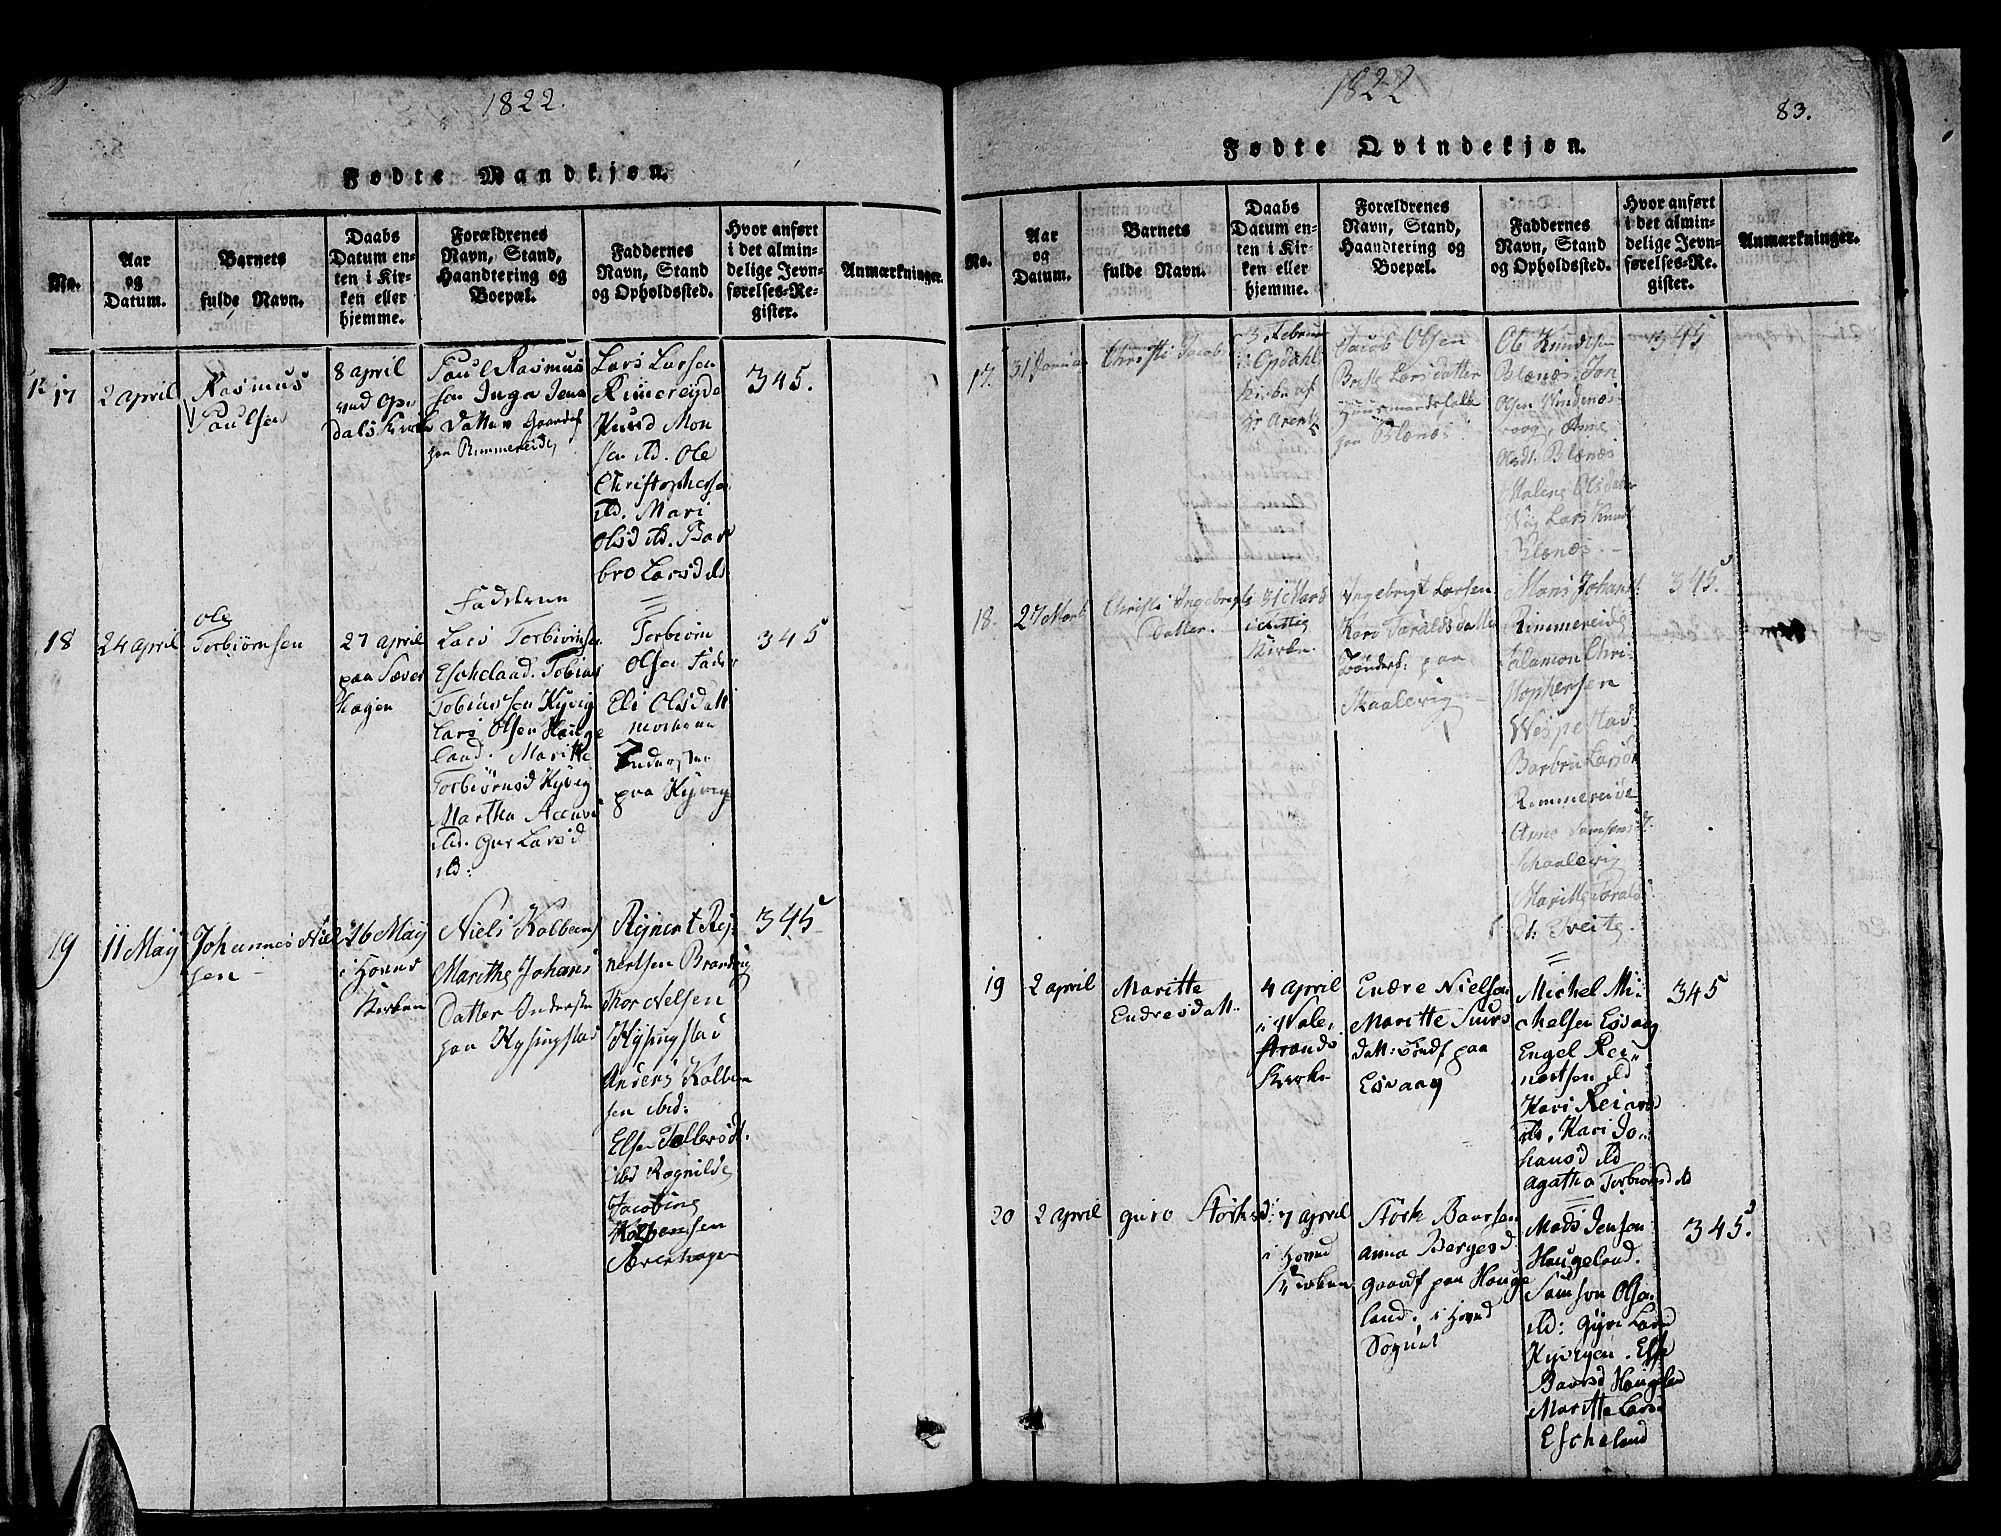 1822.
Fødte Mandkjøn.
No.
Aar
og
Datum.
Barnets
fulde Navn.
Daabs
Datum en-
ten i Kir-
ken eller
hjemme.
Forældrenes
Navn, Stand,
Haandtering og
Boepæl.
Faddernes
Navn, Stand
og Opholdssted.
Hvor anført
i det almin-
delige Jevn-
førelses-Re-
gister.
Anmærkninger.
17
2 april
Rasmus
Paulsen
8 april
ved Op-
dals Kirke
Paul Rasmus
sen Inga Jens
Datter Gaardsf
paa Rimmereide,
Lars Larsen
Rimereyde
Knud Mon
sen ibd. Ole
Christophersen
ibd. Mari
Olsd ibd. Bar
bro Larsd ibd
345.
18
24 april
Ole
Torbiørnsen
27 april
paa Sæver
hagen
Fadderne
Lars Torbiørnsen
Escheland. Tobias
Tobiassen Kyvig
Lars Olsen Hauge
land. Maritte
Torbiørnsd Kyvig
Martha
ibd. Gur Larsd
ibd:
Torbiørn
Olsen Fader
Eli Olsdatt
Inderster
paa Kyvig
345
19
11 May
Johannes Niel
sen
26 May
i Hovud
Kirken
Niels Kolbens
Marithe Johans
Datter Inderste
paa Kysingstad
Rejnert Rej-
nertsen Brandvig
Thor Nelsen
Kysingstad
Anders Kolben
sen ibid:
Else Tollevsdt.
ibd Ragnilde
Jacobine
Sæverhagen
345
1822
83.
Fødte Qvindekjøn.
No.
Aar
og
Datum.
Barnets
fulde Navn.
Daabs
Datum en-
ten i Kir-
ken eller
hjemme.
Forældrenes
Navn, Stand,
Haandtering og
Boepæl.
Faddernes
Navn, Stand
og Opholdssted.
Hvor anført
i det almin-
delige Jevn-
førelses-Re-
gister.
Anmærkninger.
17.
31 Januar
Christi Jacobs
3 Februar
i Opdahl
Kirke af
Hr Arentz
Jacob Olsen
Britte Larsdatter
Huusmandsfolk
paa Blænæs
Ole Knudsen
Blænæs. Jon
Olsen Vindenæs
vaag, Anne
Olsdt. Blænæs
Malene Olsdatter
Wiig Lars Knuds
Blænæs.
345
18.
27 Marti
Christi Ingebrigts
Datter.
31 Marts
i Fittie
Kirke.
Ingebrigt Larsen
Kari Taraldsdatter
Bøndersf: paa
Skaalevig
Mons Johans:
Rimmereide
Salamon Chri-
stophersen
Wespestad
Barbru Larsdr
Rimmereide
Anne Samsonsdt.
Skaalevig
Maritte Tarals
dt. Treite.
345.
19
2 april
Maritte
Endresdatt.
4 april
i Vale,
strands
Kirke
Endre Nielsen
Maritte Siurs
datt: Bøndf paa
Esvang
Michel Mi-
chelsen Esvang
Engel Rei-
nertsen ibd
Kari Reinrd
ibd. Kari Jo-
hansd ibd
Agatha Torbiørnsd ibd
345
20
2 april
Guro Størksd:
7 april
i Hovud
Kirken
Størk Baarsen
Anna Bergesd.
Gaardf paa Hauge
land. i Hovud
Sognet
Mads Jensen
Haugeland.
Samson Olsen
ibd: Gyri Larsd
Kyvigen. Else
Baarsd Haugeland
Maritte Larsd
Escheland
345.